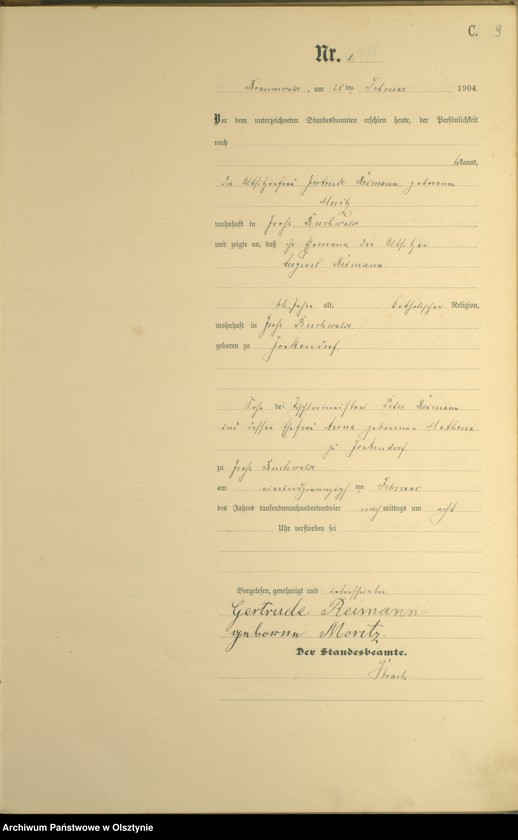 C. 9
Nr. 8.
Braunswalde, am 25ten Februar 1904.
Vor dem unterzeichneten Standesbeamten erschien heute, der Persönlichkeit
nach
bekannt,
die Altsitzerfrau Gertrude Reimann geborene
Moritz
wohnhaft in Groß Buchwalde
und zeigte an, daß ihr Ehemann der Altsitzer
August Reimann.
66 Jahre alt, katholischer Religion,
wohnhaft in Groß Buchwalde
geboren zu Jonkendorf.
Sohn des Tischlermeisters Peter Reimann
und dessen Ehefrau Anna geborene
zu Jonkendorf
zu Groß Buchwalde
am ten Februar
des Jahres tausendneunhundertundvier nachmittags um acht
Uhr verstorben sei
Vorgelesen, genehmigt und unterschrieben
Gertrude Reimann
geborne Moritz.
Der Standesbeamte.
Archiwum Państwowe w Olsztynie